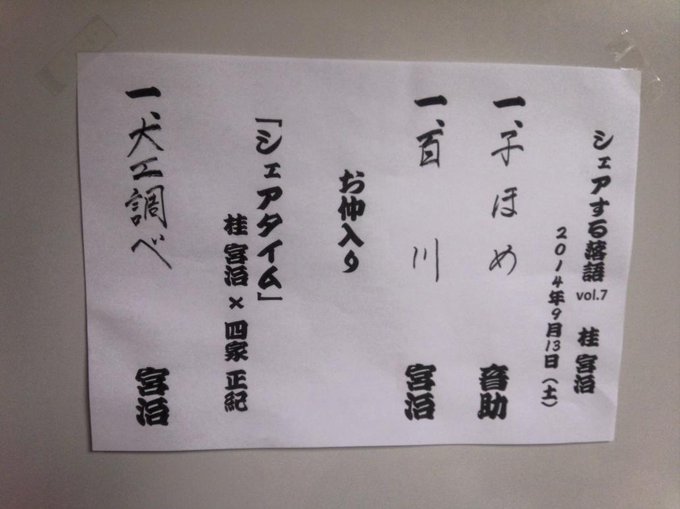 シェアする落語 vol.7 桂 宮治
2014年9月13日（土）
一、子ほめ 音助
一、百川 宮治
お仲入り
「シェアタイム」
桂 宮治 × 四家 正紀
一、大工調べ 宮治